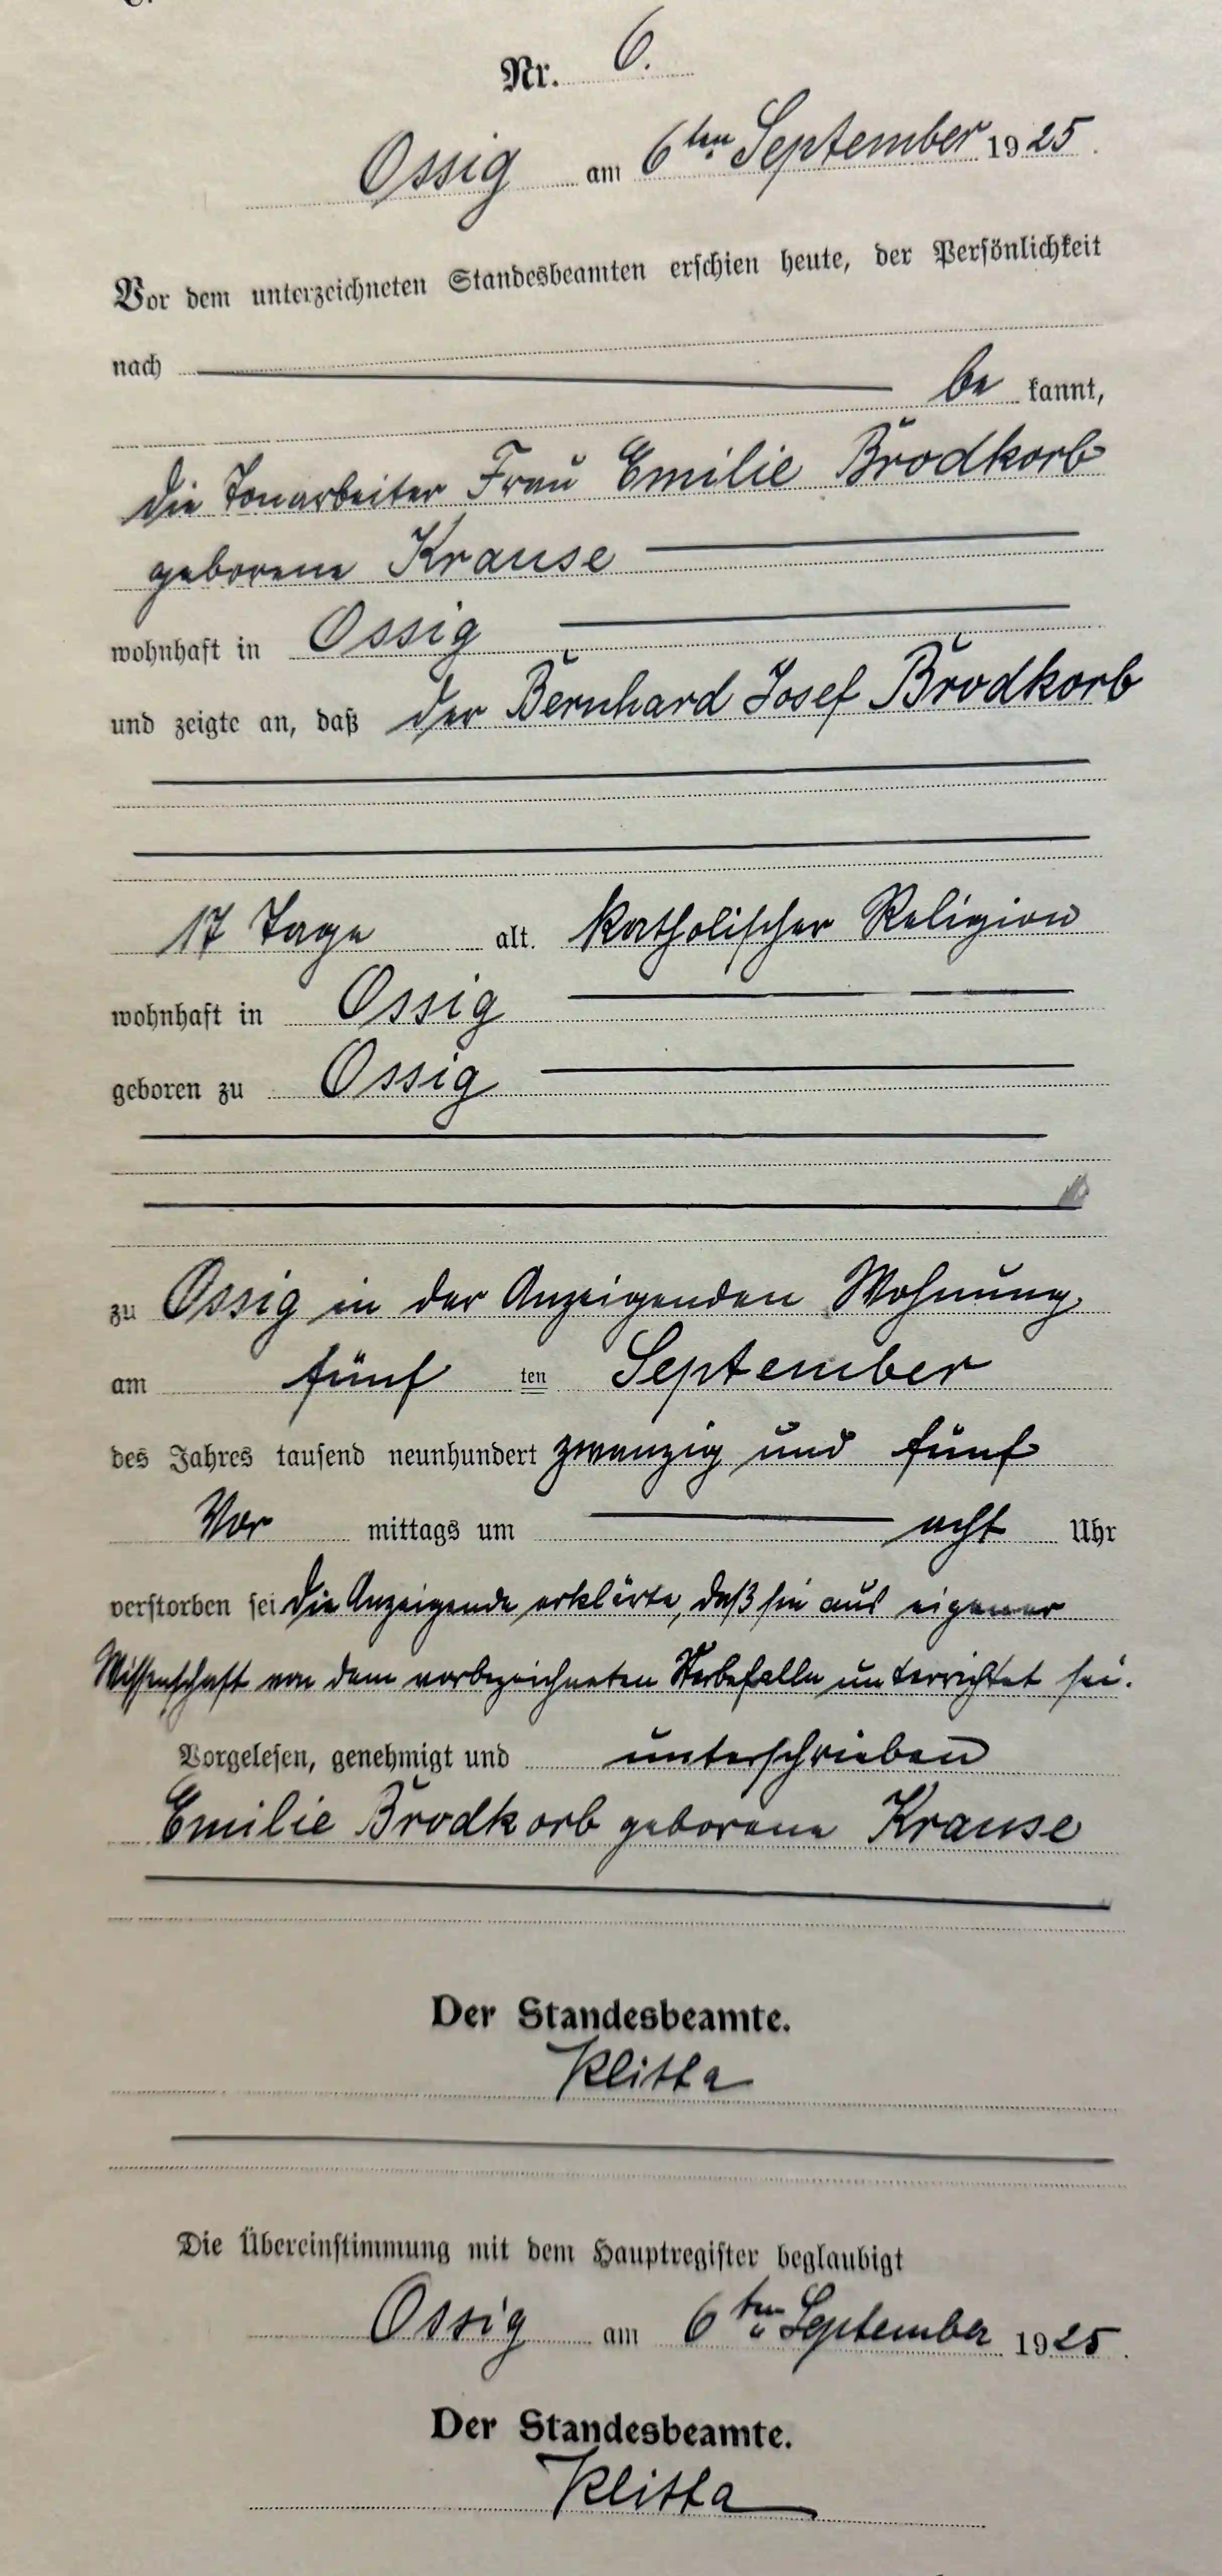 Nr. 6.
Ossig am 6ten September 1925.
Vor dem unterzeichneten Standesbeamten erschien heute, der Persönlichkeit
nach be kannt,
die Tonarbeiter Frau Emilie Brodkorb
geborene Krause
wohnhaft in Ossig
und zeigte an, daß der Bernhard Josef Brodkorb
17 Tage alt. katholischer Religion
wohnhaft in Ossig
geboren zu Ossig
zu Ossig in der Anzeigenden Wohnung.
am fünf ten September
des Jahres tausend neunhundert zwanzig und fünf
Vor mittags um acht Uhr
verstorben sei die Anzeigende erklärte, daß sie aus eigener
Wissenschaft von dem vorbezeichneten Sterbefalle unterrichtet sei.
Vorgelesen, genehmigt und unterschrieben
Emilie Brodkorb geborene Krause
Der Standesbeamte.
Die Übereinstimmung mit dem Hauptregister beglaubigt
Ossig am 6ten September 1925.
Der Standesbeamte.